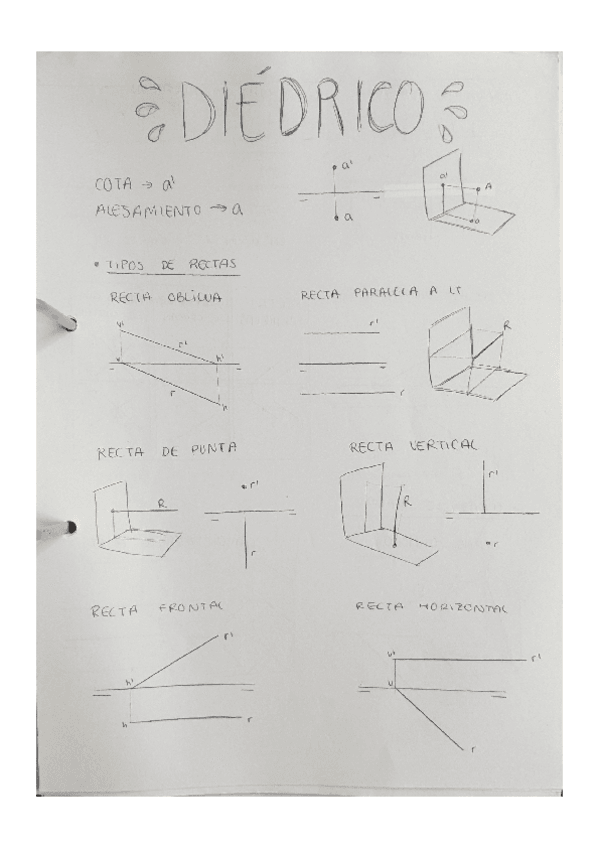 DIÉDRICO
COTA → a'
ALESAMIENTO → a
a'
a
a'
A
a
• TIPOS DE RECTAS
RECTA OBLÍCUA
RECTA PARALELA A LT
v'
r'
h'
v
r
h
r'
r
R
RECTA DE PUNTA
RECTA VERTICAL
R
r'
r
R
r'
r
RECTA FRONTAL
RECTA HORIZONTAL
r'
h'
h
r
v'
r'
v
r